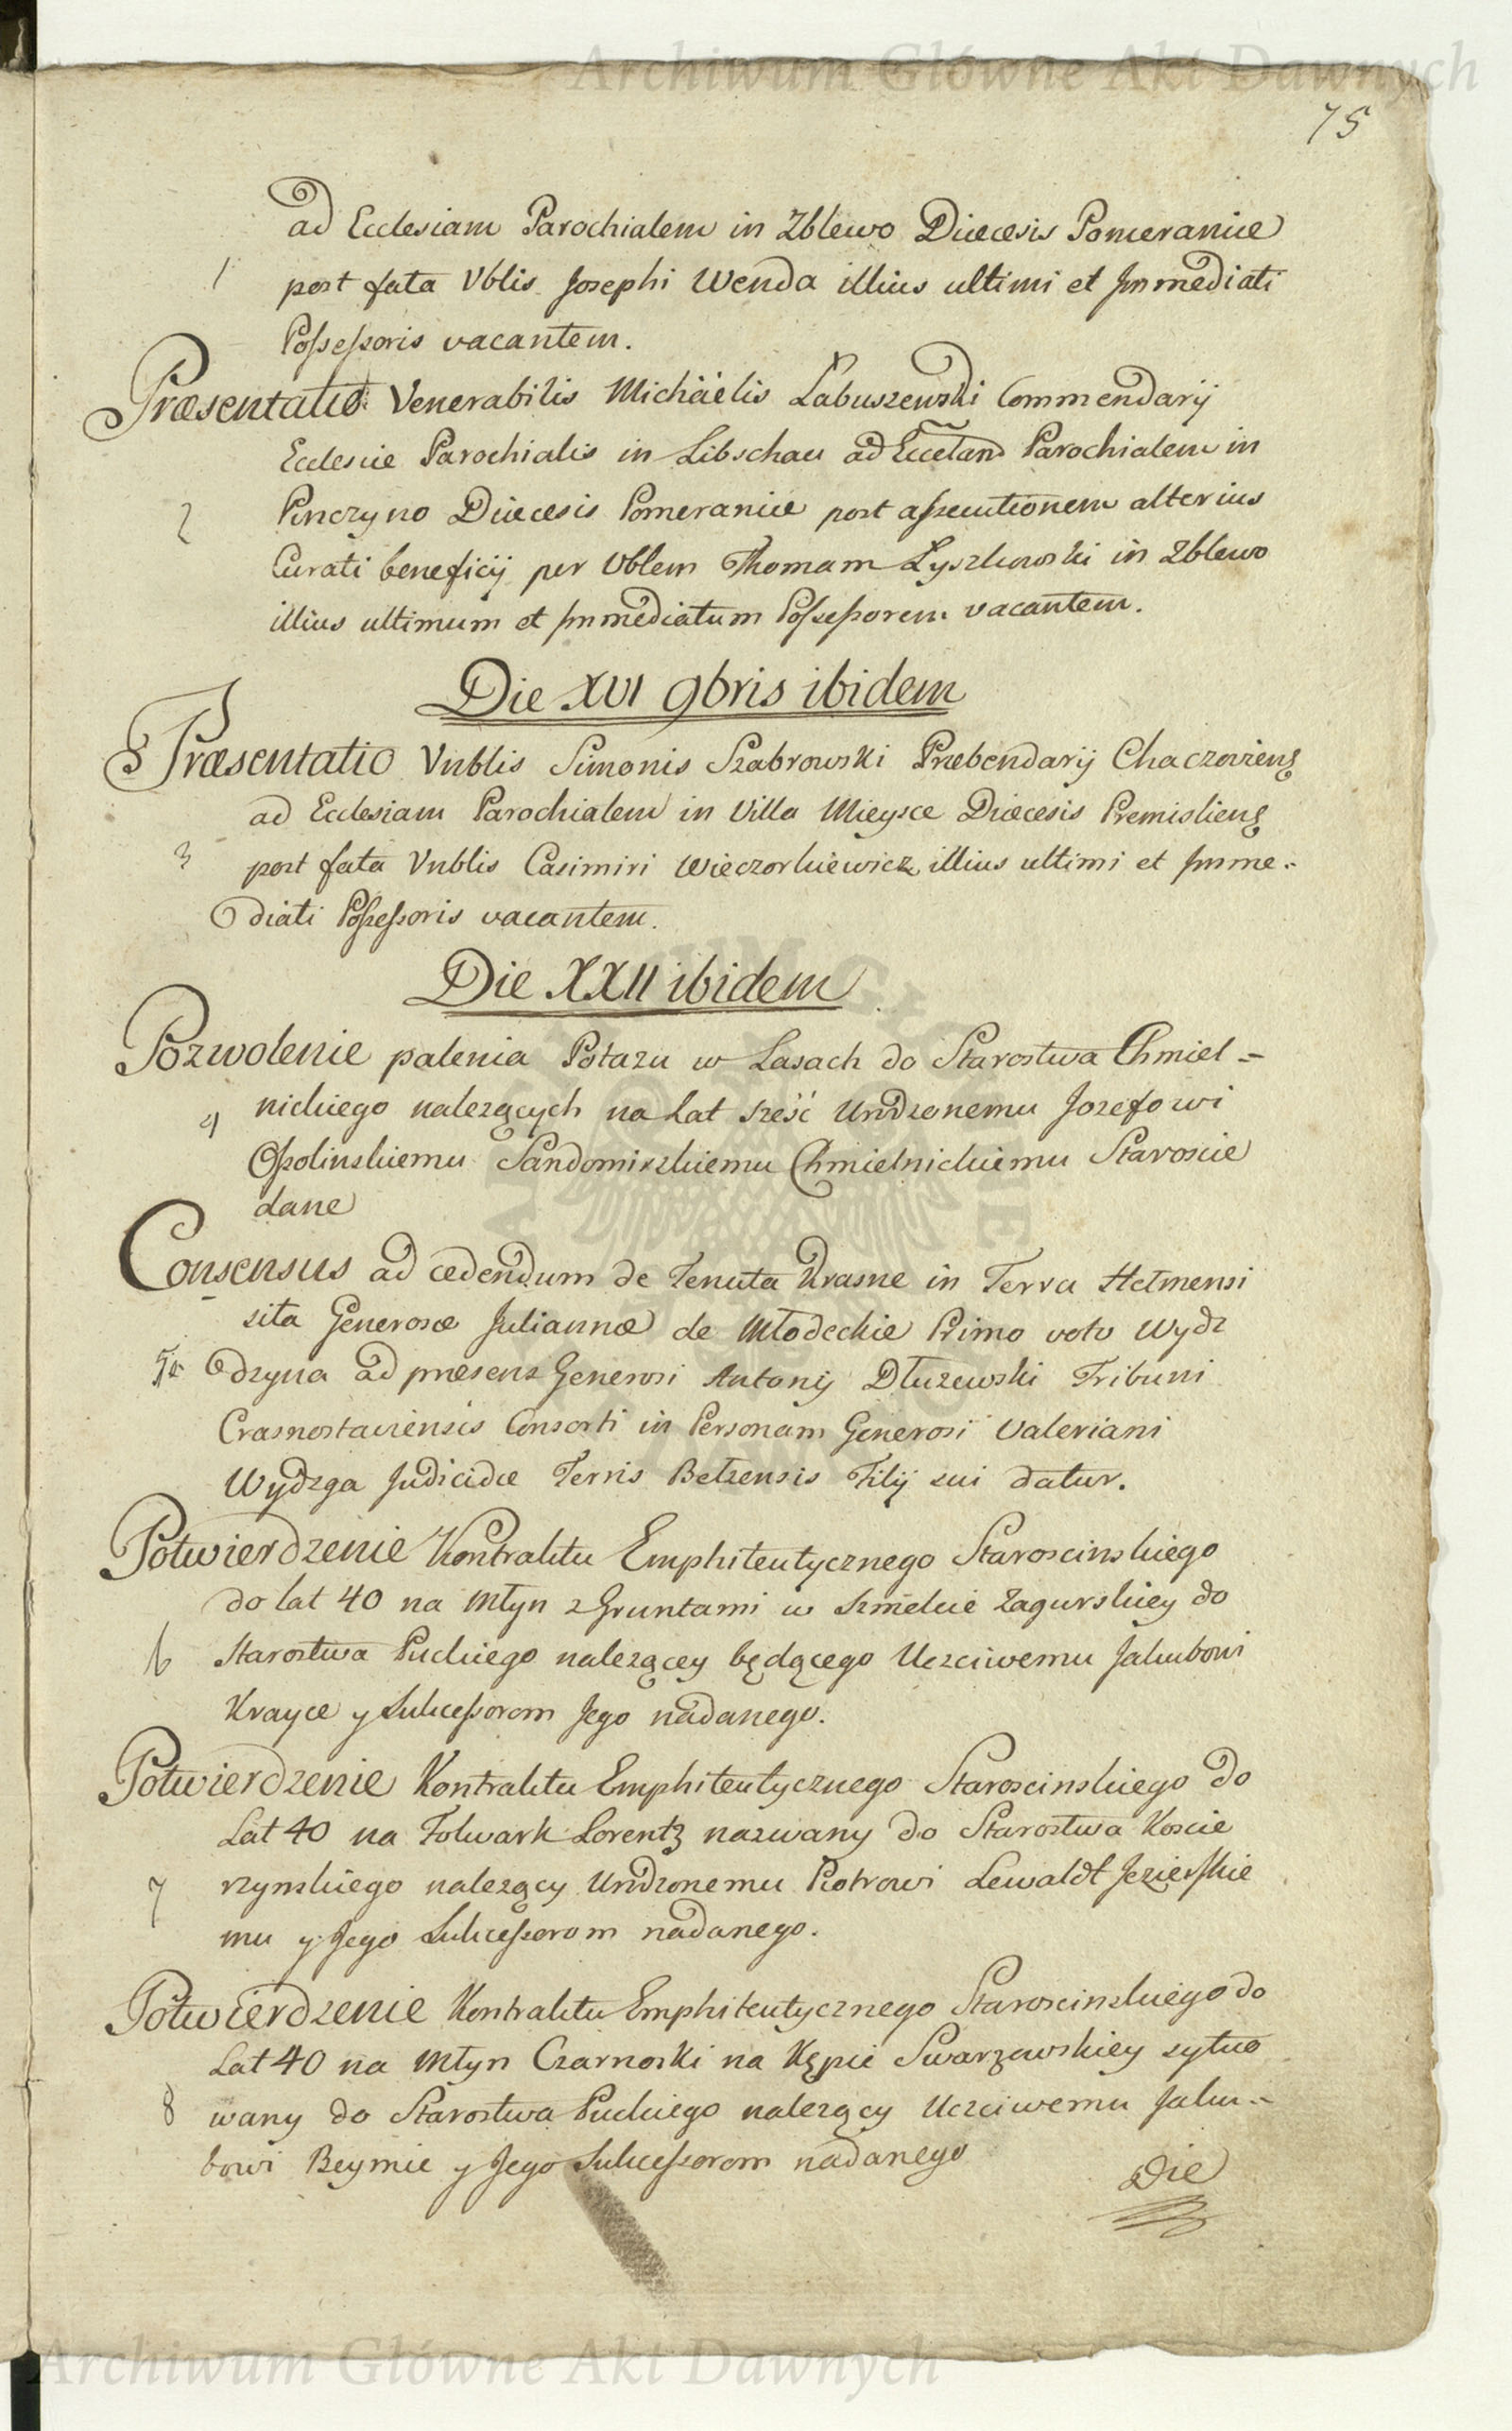 Archiwum Główne Akt Dawnych
75
ad Ecclesiam Parochialem in Zblewo Diæcesis Pomeraniæ
1 post fata Vblis Josephi Wenda illius ultimi et Immediati
Possessoris vacantem.
Præsentatio Venerabilis Michäelis Łabuszewski Commendarij
Ecclesiæ Parochialis in Libschau ad Parochialem in
2 Pinczyno Diæcesis Pomeraniæ post assecutionem alterius
Curati beneficij per Vblem Thomam Łyszkowski in Zblewo
illius ultimum et Immediatum Possessorem vacantem.
Die XVI 9bris ibidem
Præsentatio Vnblis Simonis Szabrowski Præbendarij Chaczoviens
ad Ecclesiam Parochialem in Villa Mieysce Diæcesis Premisliens
3 post fata Vnblis Casimiri Wieczorkiewicz illius ultimi et Imme-
diati Possessoris vacantem.
Die XXII ibidem
Pozwolenie palenia Potazu w Lasach do Starostwa Chmiel-
4 nickiego nalezących na Lat sześć Urodzonemu Jozefowi
Ossolinskiemu Sandomirskiemu Chmielnickiemu Staroscie
dane
Consensus ad cedendum de Tenuta Krasne in Terra Hełmensi
sita Generosæ Juliannæ de Młodeckie Primo voto Wydz
5 dzyna ad præsens Generosi Antonij Dłuzewski Tribuni
Crasnostaviensis Consorti in Personam Generosi Valeriani
Wydzga Judicidæ Terris Bełzensis Filij sui datur.
Potwierdzenie Kontraktu Emphiteutycznego Staroscinskiego
do lat 40 na Młyn z Gruntami w Szmelcie Zagurskiey do
6 Starostwa Puckiego nalezącey będącego Uczciwemu Jakubowi
Krayce y Sukcessorom Jego nadanego.
Potwierdzenie Kontraktu Emphiteutycznego Staroscinskiego do
Lat 40 na Folwark Lorentz nazwany do Starostwa Koscie
7 rzynskiego nalezący Urodzonemu Piotrowi Lewaldt Jezierskie
mu y Jego Sukcessorom nadanego.
Potwierdzenie Kontraktu Emphiteutycznego Staroscinskiego do
Lat 40 na Młyn Czarnoski na Kępie Swarzewskiey sytuo
8 wany do Starostwa Puckiego nalezący Uczciwemu Jaku-
bowi Beymie y Jego Sukcessorom nadanego
Die
Archiwum Główne Akt Dawnych